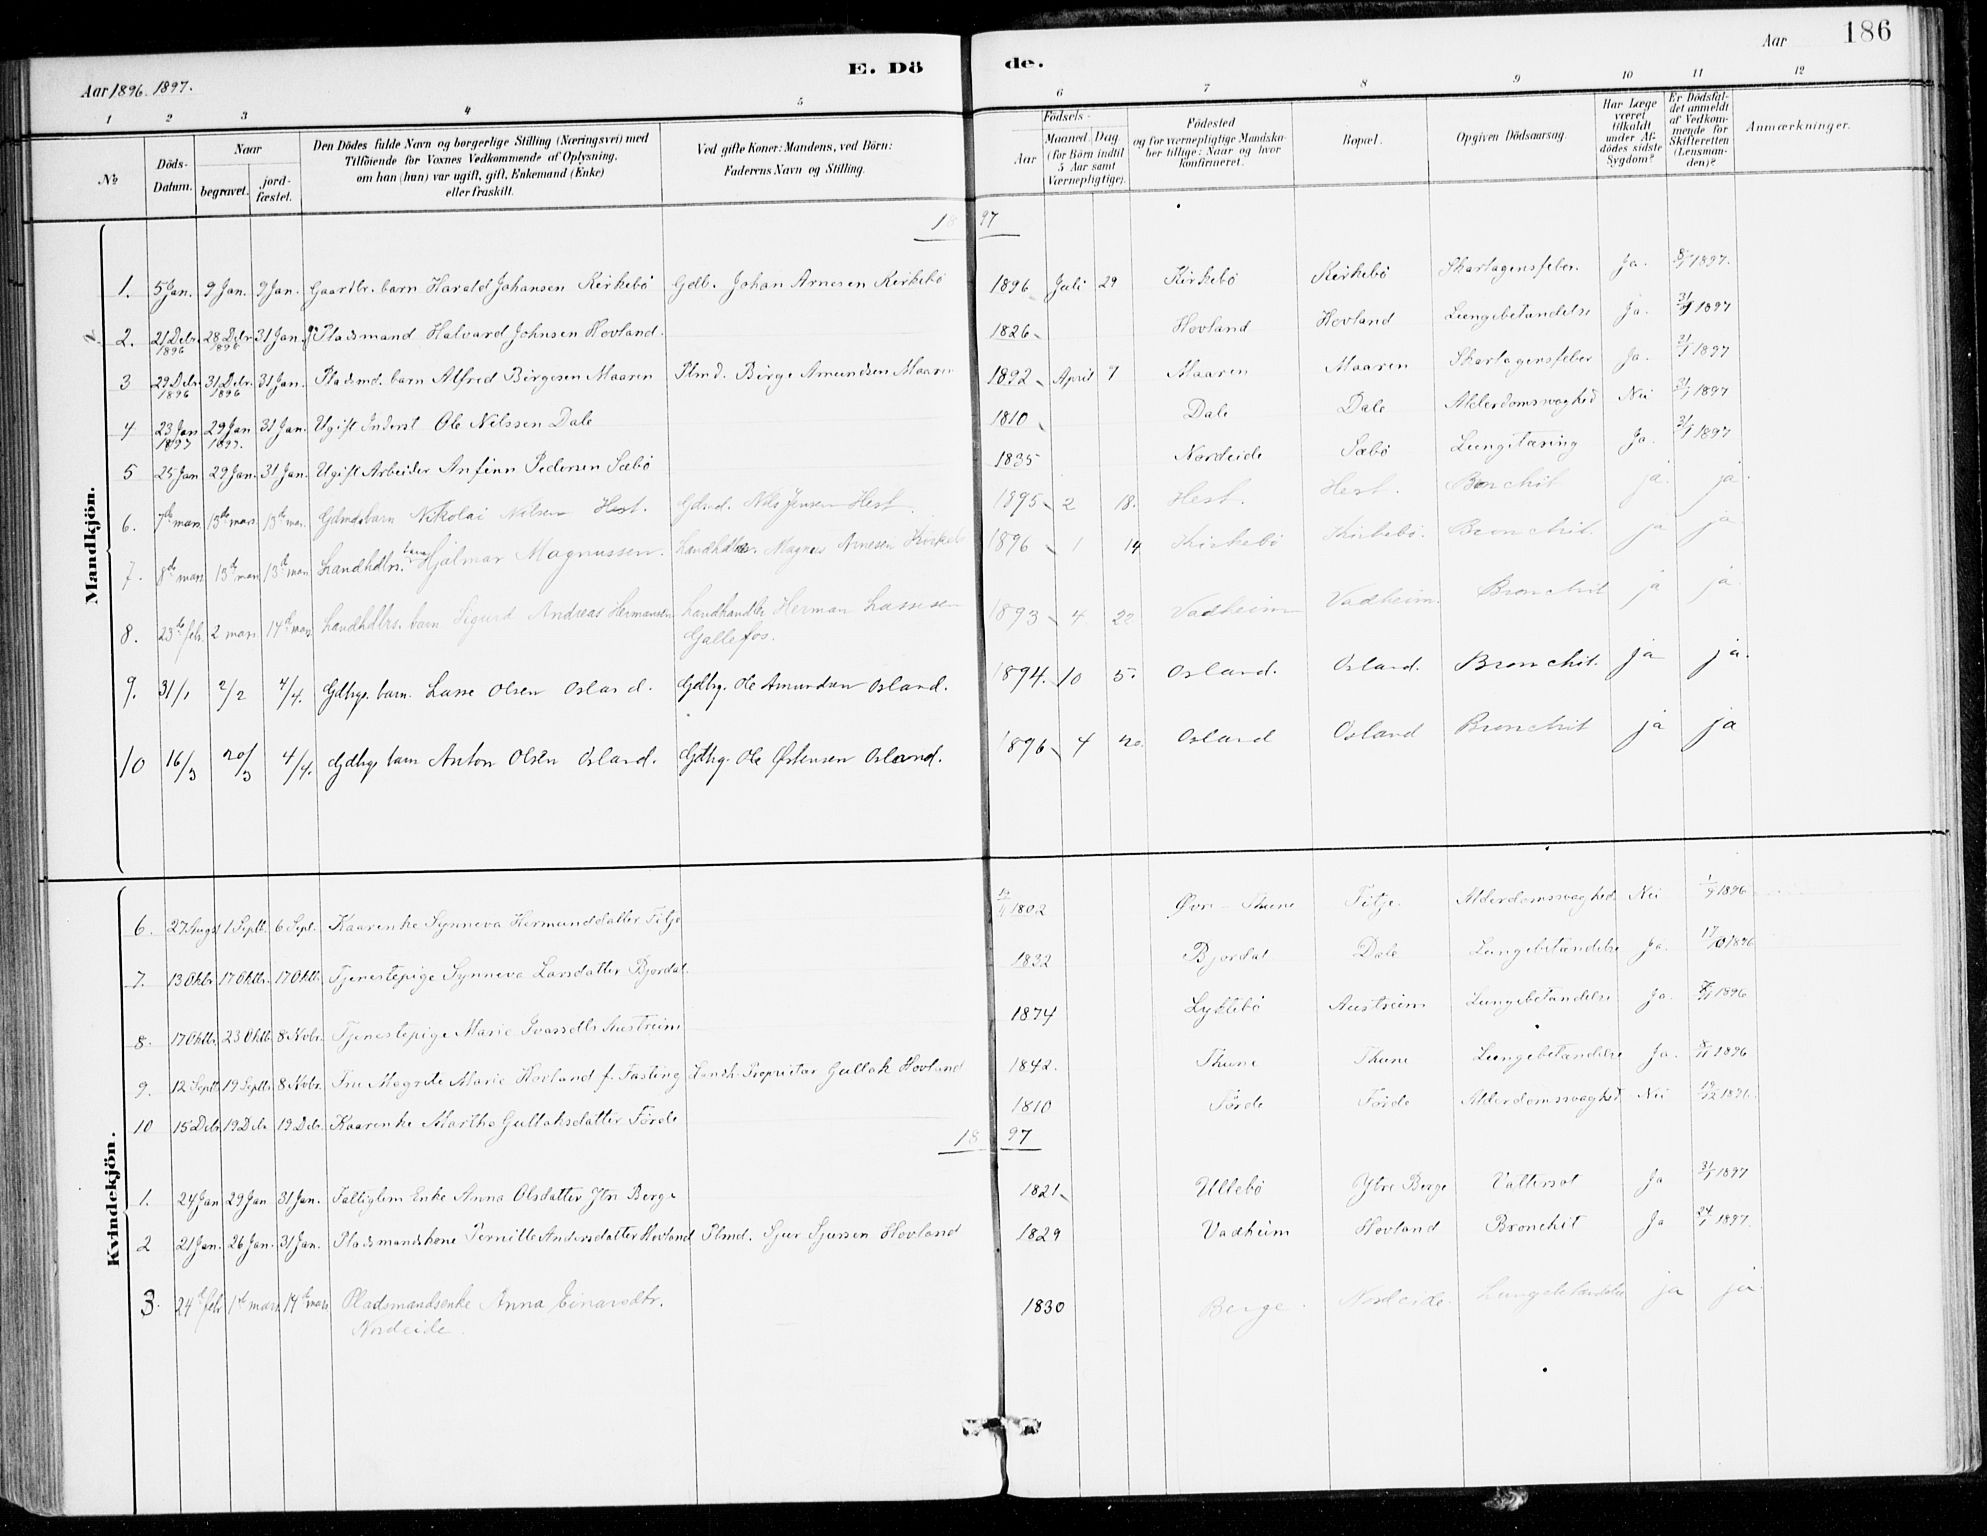 Aar 1896. 1897.
E. Dö
de.
Aar
186
1 2 3 4 5 6 7 8 9 10 11 12
No
Döds-Datum.
Naar
begravet.
jordfæstet.
Den Dödes fulde Navn og borgerlige Stilling (Næringsvei) med
Tilföiende for Voxnes Vedkommende af Oplysning,
om han (hun) var ugift, gift, Enkemand (Enke)
eller fraskilt.
Ved gifte Koner: Mandens, ved Börn:
Faderens Navn og Stilling.
Födsels-
Aar
Maaned. Dag
(for Börn indtil
5 Aar samt
Værnepligtige).
Födested
og for værnepligtige Mandskaber tillige: Naar og hvor
konfirmeret.
Bopæl.
Opgiven Dödsaarsag.
Har Læge
været
tilkaldt
under Afdödes sidste
Sygdom?
Er Dödsfaldet anmeldt
af Vedkommende for
Skifteretten
(Lensmanden)?
Anmærkninger.
Mandkjön.
1897
1. 5 Jan. 9 Jan. 9 Jan. Gaardbr. barn Harald Johansen Kirkebö Gdb. Johan Arnesen Kirkebö 1896 Juli 29 Kirkebö Kirkebö Skarlagensfeber. Ja. 1897.
2. 21 Debr. 1896 28 Debr. 1896 31 Jan. Pladsmand Halvard Johnsen Hovland. 1826 Hovland Hovland Lungebetændelse Ja. 31/1 1897
3 29 Debr. 1896 31 Debr. 1896 31 Jan. Pladsmd. barn Alfred Børgesen Maaren Plmd. Børge Amundsen Maaren 1892 April 7 Maaren Maaren Skarlagensfeber Ja. 31/1 1897
4 23 Jan 1897 29 Jan 1897. 31 Jan. Ugift Inderst Ole Nilssen Dale 1810 Dale Dale Alderdomssvaghed Nei 31/1 1897
5 25 Jan 29 Jan. 31 Jan. Ugift Arbeider Anfinn Pedersen Sæbö 1835 Nordeide Sæbö Lungetæring Ja. 31/1 1897
6. 7de mars 13de mars. 13de mars. Gdmdsbarn Nikolai Nilsen Hest. Gdmd. Nils Jensen Hest. 1895 2 18. Hest. Hest. Bronchit ja. ja.
7. 8de mars 13de mars 13de mars Landhdlrs. barn Hjalmar Magnussen. Landhdlr. Magnus Arnesen Kirkebö 1896 1 14 Kirkebö Kirkebö. Bronchit. ja ja
8. 23de febr. 2 mars 14de mars Landhdlrs. barn Sigurd Andreas Hermansen Landhandler Herman Lassesen
Gallefos. 1893 4 22 Vadheim Vadheim. Bronchit ja ja.
9. 31/1 2/2 4/4. Gdbrgr. barn. Lasse Olsen Osland. Gdbrg. Ole Amundsen Osland. 1894. 10 5. Osland. Osland. Bronchit. ja ja.
10 16/3 20/3 4/4. Gdbrg. barn Anton Olsen Osland. Gdbrg. Ole Østensen Osland. 1896 4 20. Osland Osland Bronchit ja ja
Kvindekjön.
6. 27 Augst 1 Septb. 6 Sept. Kaarenke Synneva Hermunddatter Tilje 1802 Øvre Thune Tilje. Alderdomssvaghed. Nei 1/9 1896
7. 13 Oktbr 17 Oktbr. 17 Oktb. Tjenestepige Synneva Larsdatter Bjordal. 1832 Bjordal Dale Lungebetændelse Ja. 17/10 1896
8. 17 Oktbr. 23 Oktb. 8 Novbr. Tjenestepige Marie Ivarsdtr Austreim 1874 Lyktebö Austreim Lungebetændelse Ja. 1896
9. 12 Septb. 19 Septbr. 8 Novbr. Fru Magrete Marie Hovland f. Fasting Lensk. Proprietær Gullak Hovland 1842. Thune Thune Lungebetændelse Ja. 8/11 1896
10 15 Debr. 19 Debr. 19 Debr. Kaarenke Martha Gullaksdatter Förde 1810 Förde Förde Alderdomssvaghed Nei 19/12 1896.
1897
1. 24 Jan 29 Jan 31 Jan. Fattiglem Enke Anna Olsdatter Ytre Berge 1821 Ullebö Ytre Berge Vattersot Ja 31/1 1897
2 21 Jan. 26 Jan. 31 Jan. Pladsmandskone Pernille Andersdatter Hovland Plmd. Sjur Sjursen Hovland 1829 Vadheim Hovland Bronchit Ja 24/1 1897.
3. 24de febr. 1ste mars 14de mars Pladsmandsenke Anna Einarsdtr.
Nordeide. 1830 Berge. Nordeide. Lungebetændelse ja ja.